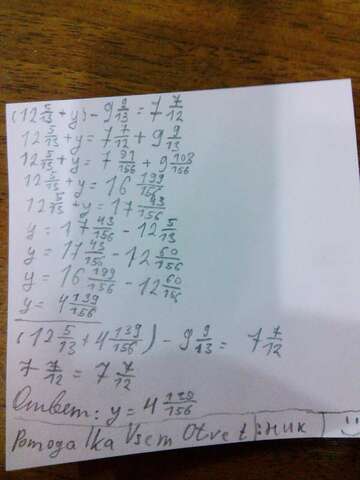 (12 5/13 + y) - 9 9/13 = 7 7/12
12 5/13 + y = 7 7/12 + 9 9/13
12 5/13 + y = 7 91/156 + 9 108/156
12 5/13 + y = 16 199/156
12 5/13 + y = 17 43/156
y = 17 43/156 - 12 5/13
y = 17 43/156 - 12 60/156
y = 16 199/156 - 12 60/156
y = 4 139/156
(12 5/13 + 4 139/156) - 9 9/13 = 7 7/12
7 7/12 = 7 7/12
Ответ: y = 4 139/156
Pomoga Ika Vsem Otvet :ник